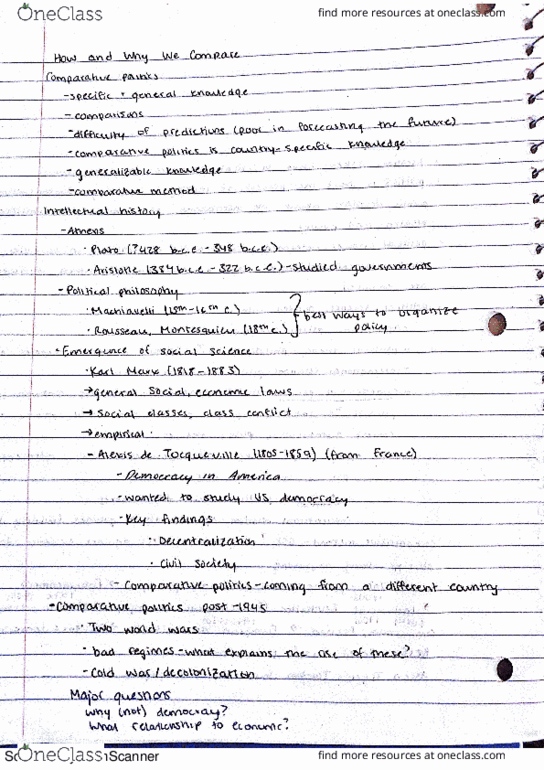 OneClass
find more resources at oneclass.com
How and Why We Compare
Comparative politics
-specific + general knowledge
- comparisons
-difficulty of predictions (poor in forecasting the future)
-comparative politics is country-specific knowledge
-generalizable knowledge
-comparative method
Intellectual history
-Athens
·Plato (?428 b.c.e. - 348 b.c.e.)
·Aristotle (384 b.c.e - 322 b.c.e.) -studied governments
-Political philosophy
·Machiavelli (15th-16th c.)
·Rousseau, Montesquieu (18th c.)
best ways to organize
policy
·Emergence of social science
·Karl Marx (1818 - 1883)
→general social, economic laws
→ social classes, class conflict
→empirical
- Alexis de Tocqueville (1805-1859) (from France)
-Democracy in America
-wanted to study US democracy
-Key findings
·Decentralization
· Civil society
- Comparative politics - coming from a different country
-Comparative politics post -1945
· Two world wars
· bad regimes - what explains the rise of these?
-Cold war / decolonization
Major questions
why (not) democracy?
What relationship to economic?
OneClass
Scanner
find more resources at oneclass.com